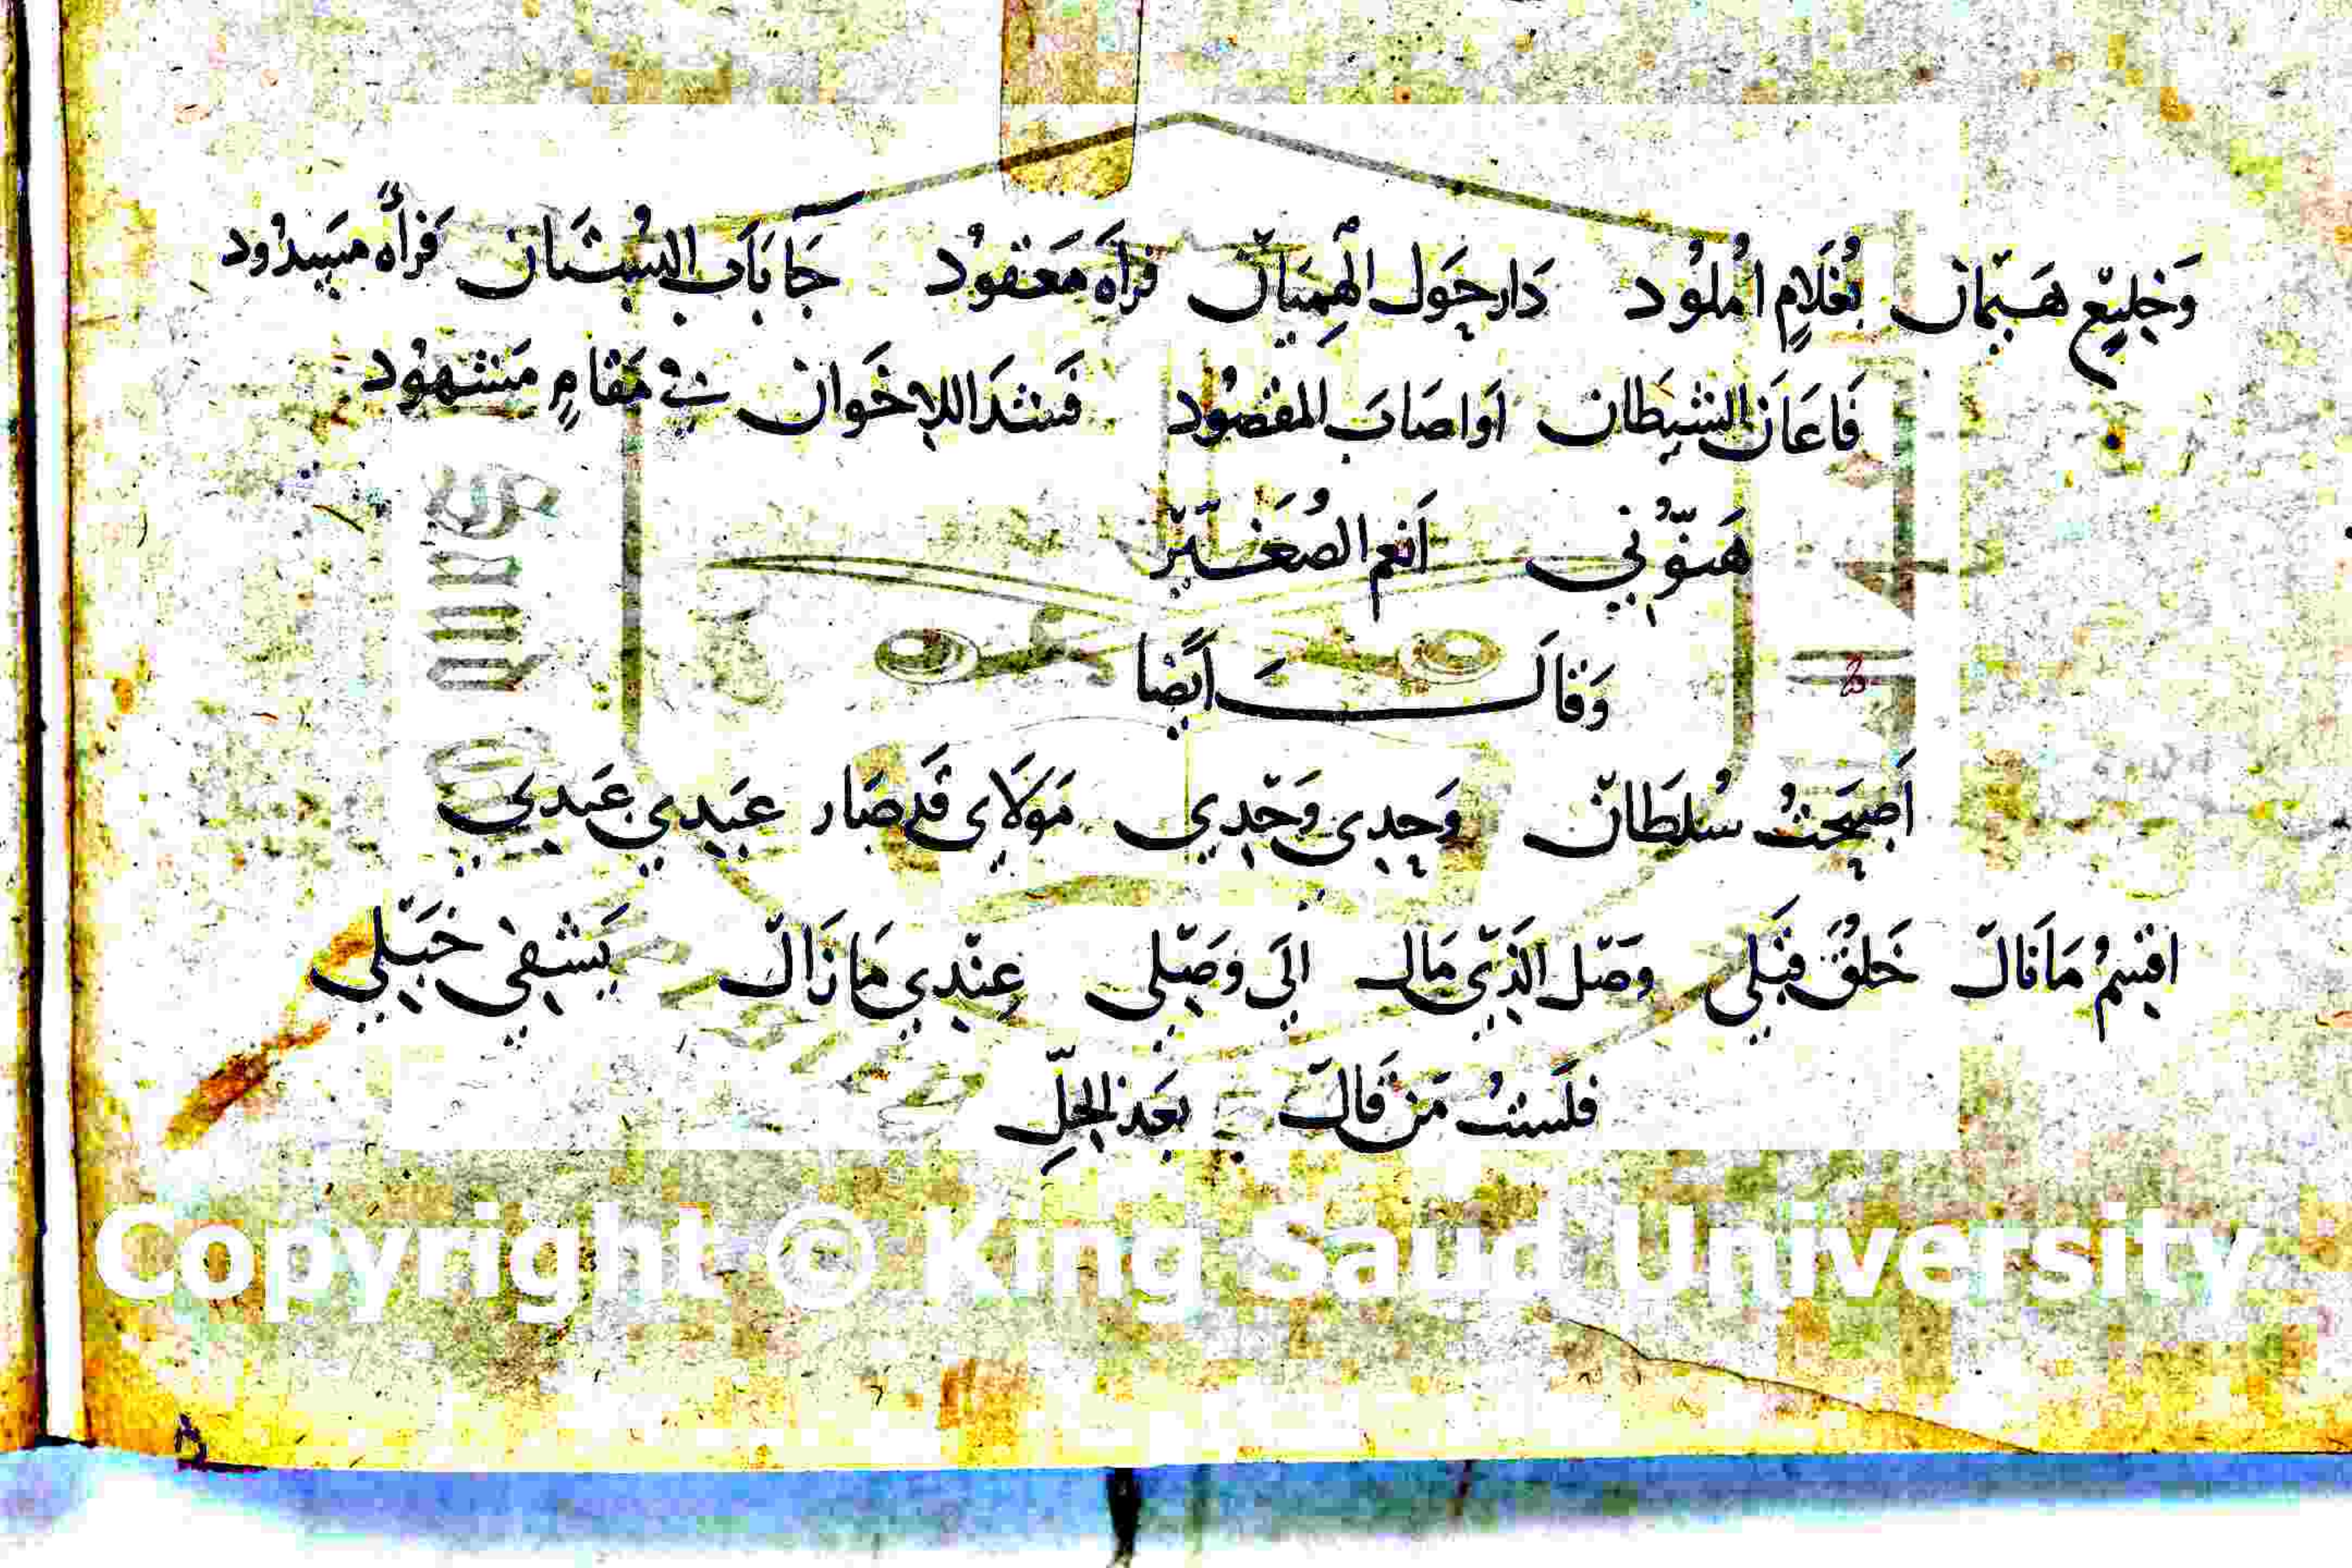 وَخِليعٍ هَيمان بغُلَامٍ امْلُود دَار حَول الهِميَان فرَآه مَعقود جَا بَابَ البُستَان فرَآه مَسدُود
فَاعَانَ الشيطَان اوَاصَابَ المقصُود فَشدَا للاِخوَان في مَقامٍ مَشهُود
هَنّوُني اَنعم الصُغَيّر
وَقالَ اَيضًا
أصبَحتُ سُلطَان وَحدِى وَحْدِي مَولَاى قَد صَار عَبدِي عَبدِي
اقسِمُ مَا نَال خَلقُ قبَلى وَصْل الَّذِى مَال الَى وَصْلى عِنْدِي مَا زَالْ يَشفِي خَبْلي
فلَستُ مَن قَالَ بَعَد الحلِّ
Copyright © King Saud University
٨